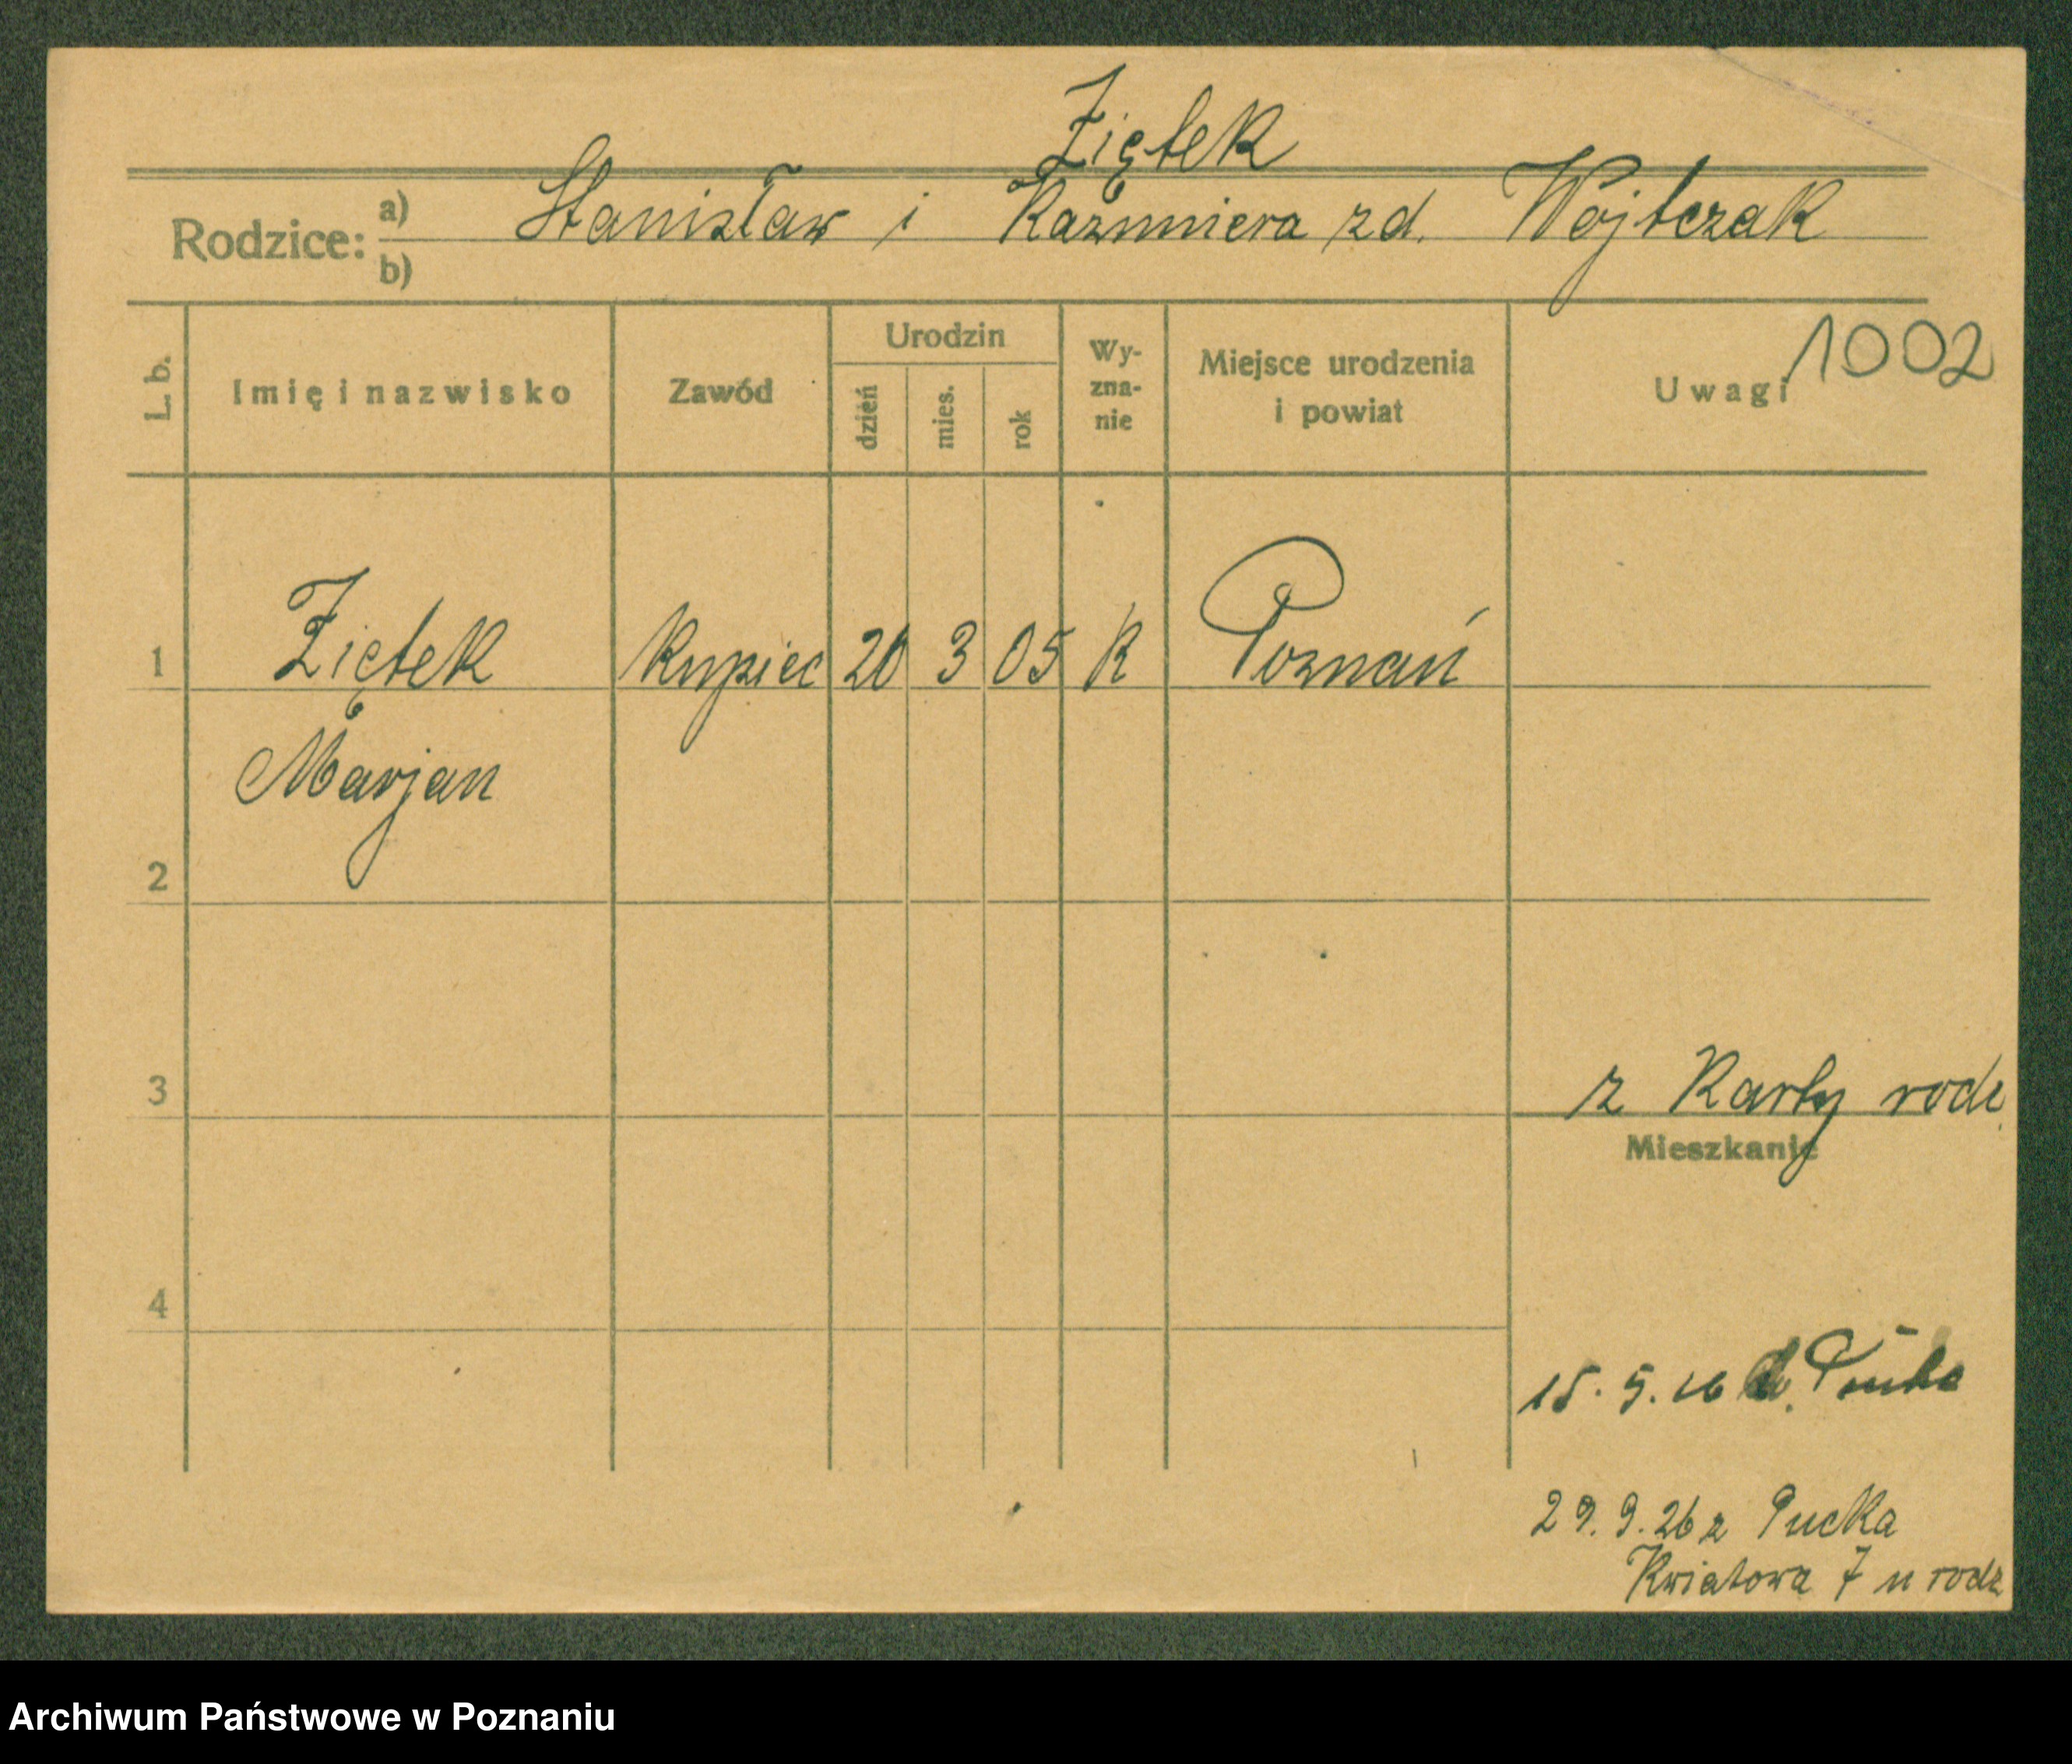 Ziętek
Rodzice: a) Stanisław i Kazimiera zd. Wojtczak
b)
L. b.
Imię i nazwisko
Zawód
Urodzin
dzień
mies.
rok
Wy-
zna-
nie
Miejsce urodzenia
i powiat
Uwagi
1002
1 Ziętek Kupiec 20 3 05 K Poznań
Marjan
2
3
z Karty rodz.
Mieszkanie
4
15. 5. 26 d.
29. 9. 26 z Pucka
Kwiatowa 7 u rodz
Archiwum Państwowe w Poznaniu